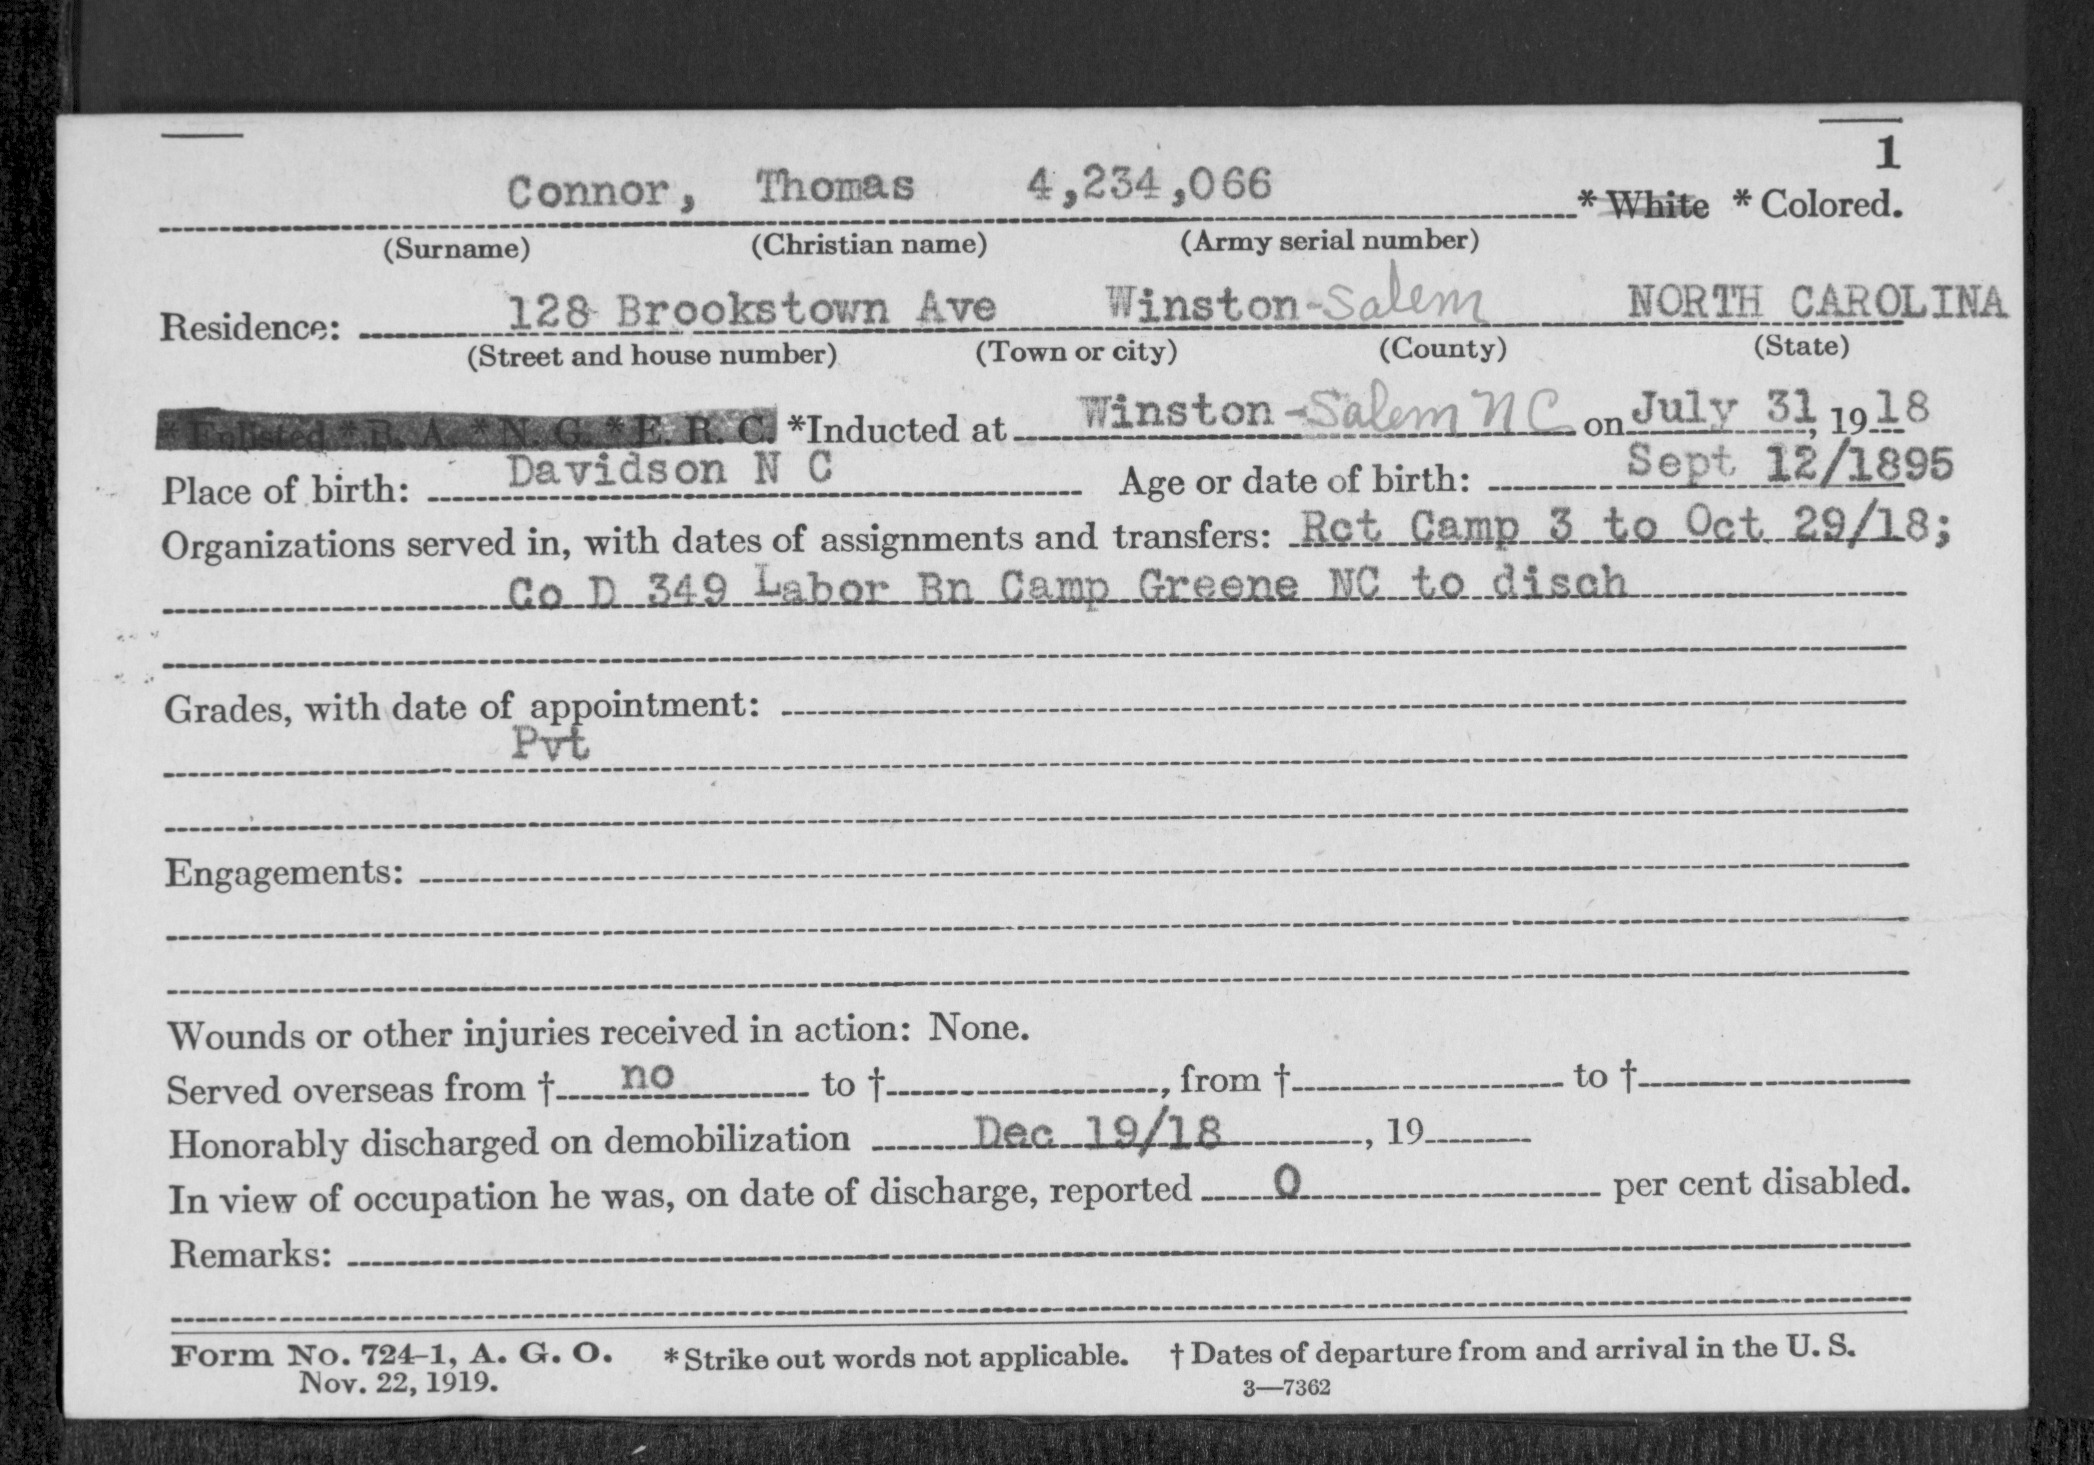 1
Connor, Thomas 4,234,066 * White * Colored.
(Surname) (Christian name) (Army serial number)
Residence: 128 Brookstown Ave Winston-Salem NORTH CAROLINA
(Street and house number) (Town or city) (County) (State)
* Enlisted * R. A. * N. G. * E. R. C. *Inducted at Winston-Salem N C on July 31, 1918
Place of birth: Davidson N C Age or date of birth: Sept 12/1895
Organizations served in, with dates of assignments and transfers: Rct Camp 3 to Oct 29/18;
Co D 349 Labor Bn Camp Greene NC to disch
Grades, with date of appointment:
Pvt
Engagements:
Wounds or other injuries received in action: None.
Served overseas from † no to †, from † to †
Honorably discharged on demobilization Dec 19/18, 19
In view of occupation he was, on date of discharge, reported 0 per cent disabled.
Remarks:
Form No. 724-1, A. G. O. * Strike out words not applicable. † Dates of departure from and arrival in the U. S.
Nov. 22, 1919. 3—7362